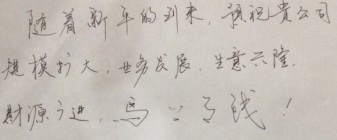 随着新年的到来，预祝贵公司
规模扩大，业务发展，生意兴隆，
财源广进，马上有钱！